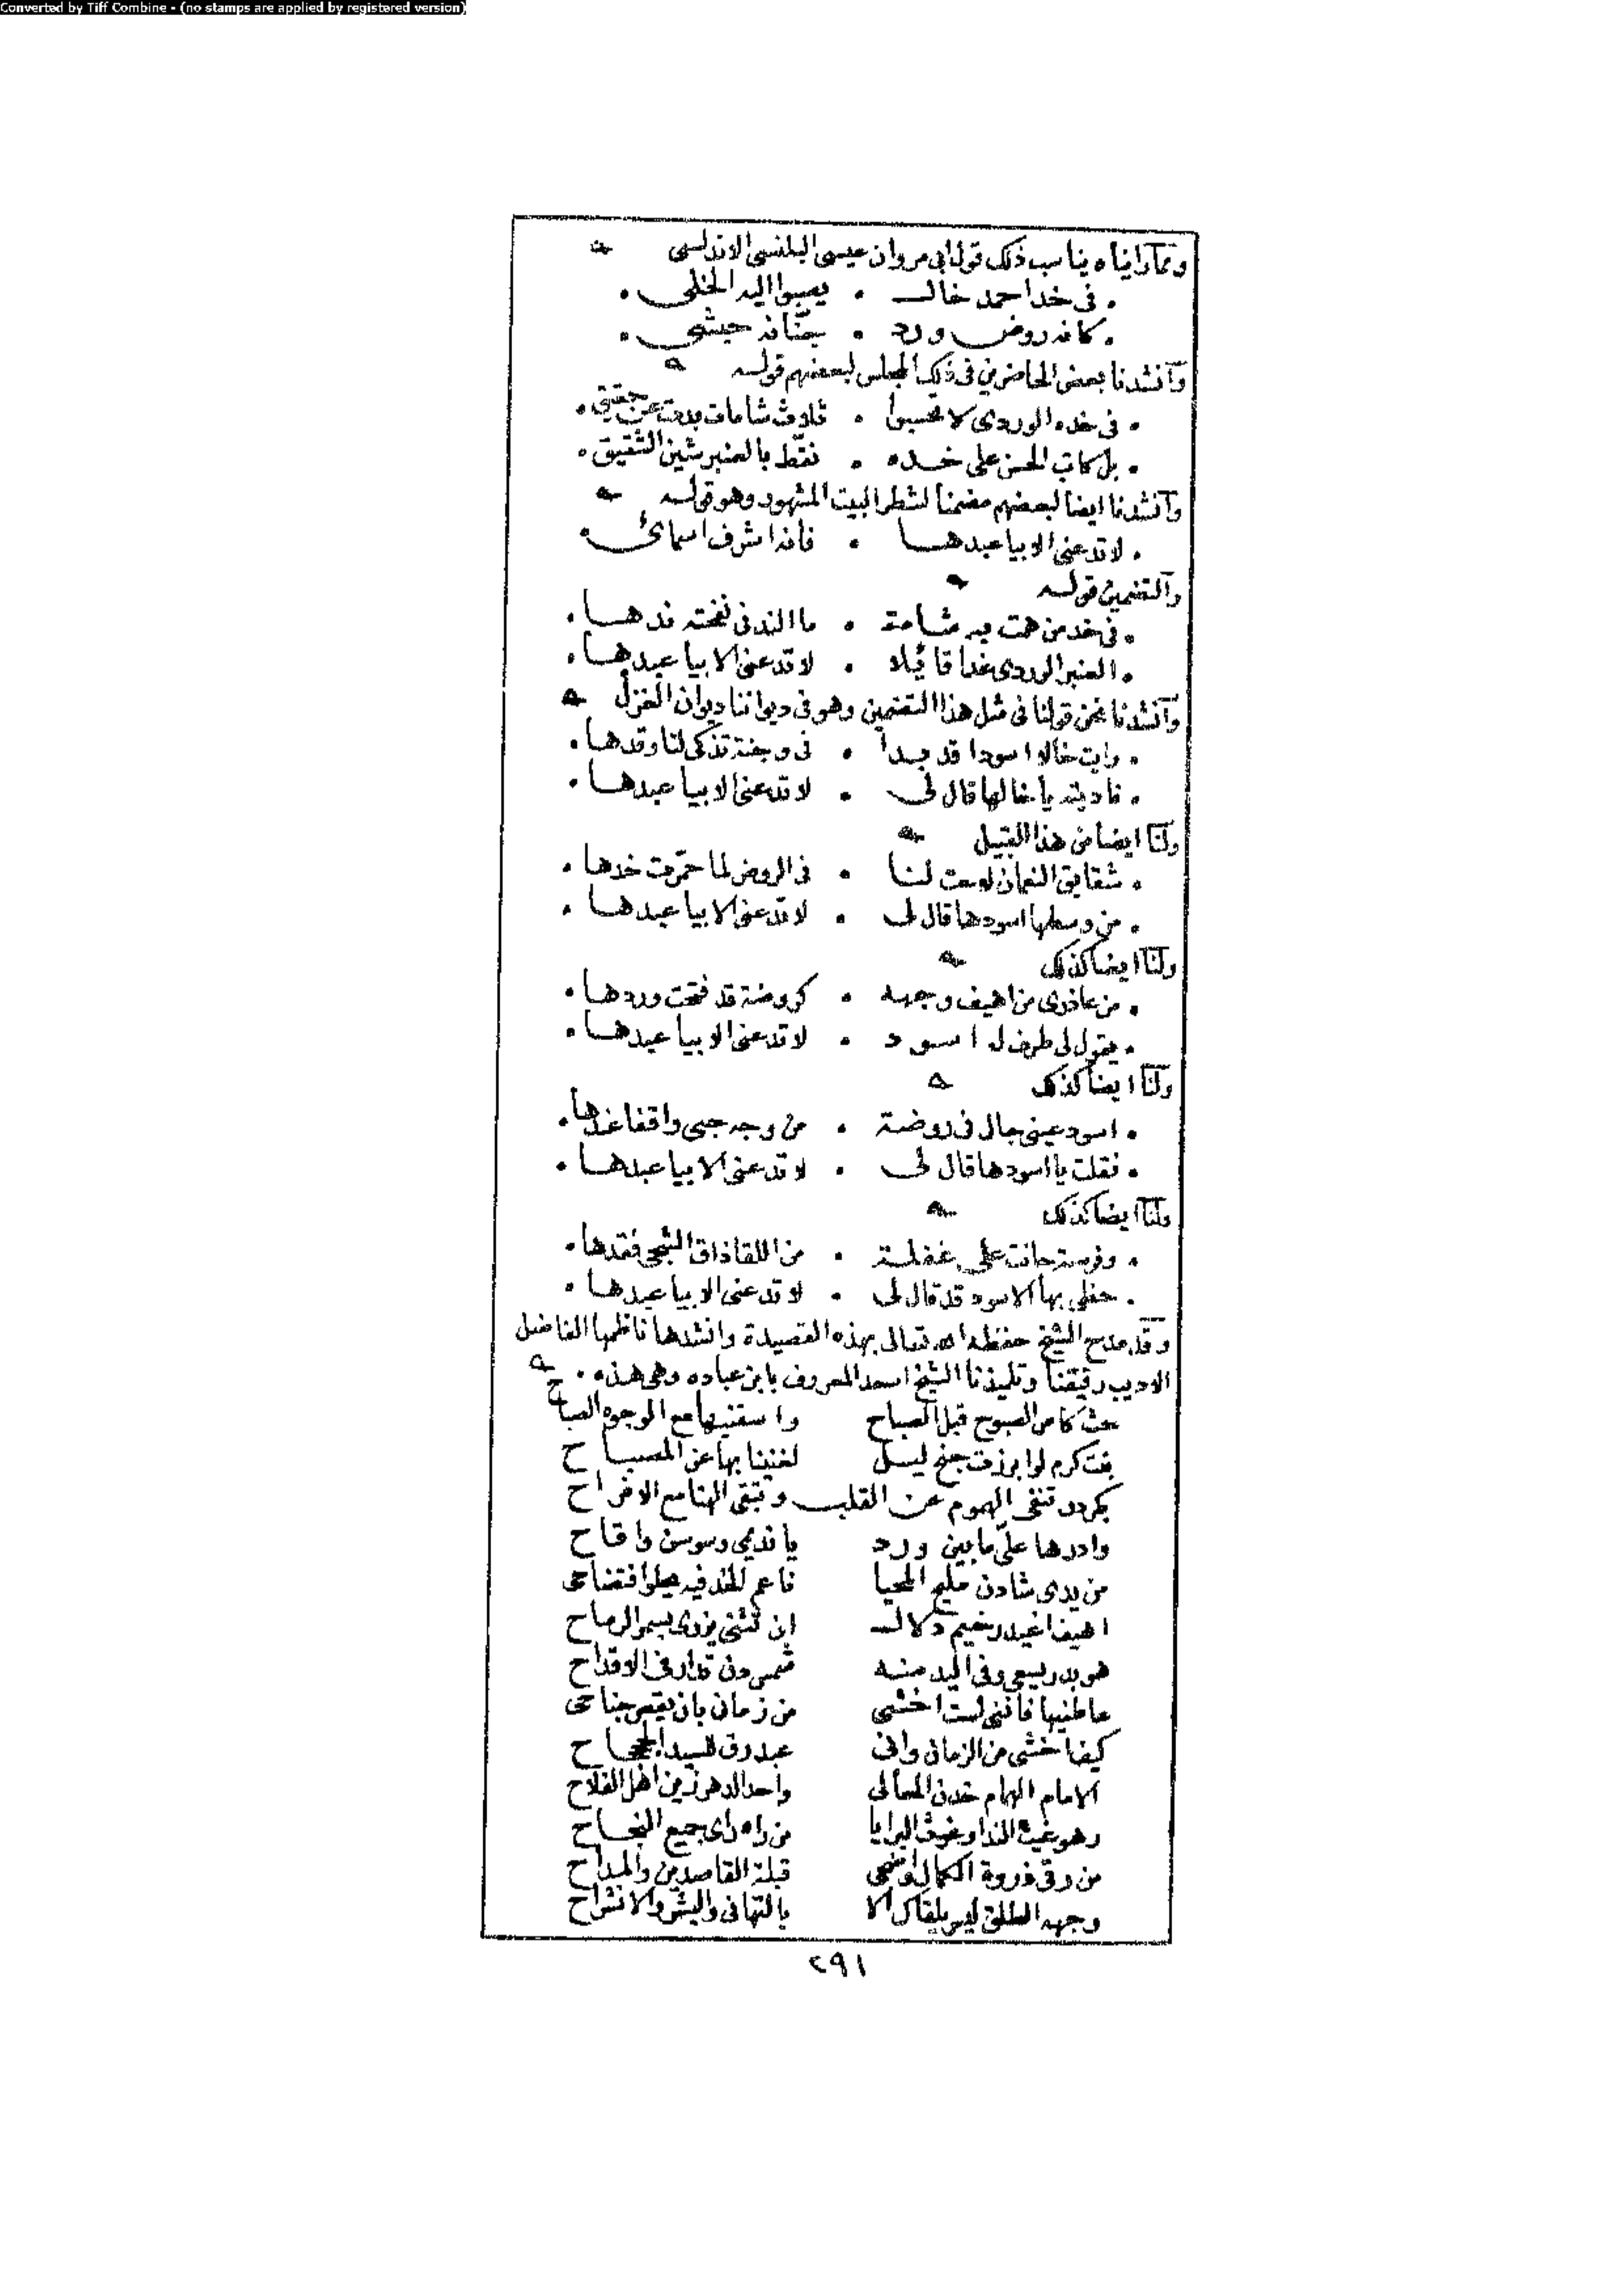 Converted by Tiff Combine - (no stamps are applied by registered version)
ومما رايناه يناسب ذلك قول ابى مروان عيسى البلنسى الاندلسى
• فى خد احمد خال • يصبوا اليه الخلى •
• كانه روض ورد • جنانه حبشى •
وانشدنا بعض الحاضرين فى ذلك المجلس لبعضهم قوله
• فى خده الوردى لا تحسبوا • ثلاث شامات بدت عن حقيق •
• بل كاتب الحسن على خده • نقط بالعنبر شين الشقيق •
وانشدنا ايضا لبعضهم مضمنا لشطر البيت المشهور وهو قوله
• لا تدعنى الا بيا عبدها • فانه اشرف اسمائى •
والتضمين قوله
• فى خد من همت به شامة • ما الند فى نفحته ندها •
• العنبر الوردى غدا قائلا • لا تدعنى الا بيا عبدها •
وانشدنا نحن قولنا فى مثل هذا التضمين وهو فى ديواننا ديوان الغزل
• رايت خالا اسودا قد بدا • فى وجنة تذكى لنا وقدها •
• ناديته يا خالها قال لى • لا تدعنى الا بيا عبدها •
ولنا ايضا من هذا القبيل
• شقايق النعمان لاحت لنا • فى الروض لما حمرت خدها •
• من وسطها اسودها قال لى • لا تدعنى الا بيا عبدها •
ولنا ايضا كذلك
• من عاذرى من اهيف وجهه • كروضة قد فتحت وردها •
• يقول لى طرف له اسود • لا تدعنى الا بيا عبدها •
ولنا ايضا كذلك
• اسود عينى جال فى روضة • من وجه حبى واقفا عندها •
• فقلت يا اسودها قال لى • لا تدعنى الا بيا عبدها •
ولنا ايضا كذلك
• وفرصة حانت على غفلة • من اللقا ذاق الشجى فقدها •
• حظى بها الاسود قد قال لى • لا تدعنى الا بيا عبدها •
وقد مدح الشيخ حفظه الله تعالى بهذه القصيدة وانشدها ناظمها الفاضل
الاديب رفيقنا وتلميذنا الشيخ اسعد المعروف بابن عباده وهى هذه •
حث كاس الصبوح قبل الصباح واسقنيها مع الوجوه الصباح
بنت كرم لو ابرزت جنح ليل لغنينا بها عن المصباح
بكر دن تنفى الهموم عن القلب وتبقى الهنا مع الافراح
وادرها على ما بين ورد يا نديمى وسوسن واقاح
من يدى شادن مليح المحيا ناعم الخد فيه يحلو افتضاحى
اهيف اغيد رخيم دلال ان تثنى يزرى بسمر الرماح
هو بدر يسعى وفى اليد منه شمس دن تدار فى الاقداح
عاطنيها فاننى لست اخشى من زمانى بان يقص جناحى
كيف اخشى من الزمان وانى عبد رق للسيد الجحجاح
الامام الهمام خدن المعالى واحد الدهر زين اهل الفلاح
وهو غيث الندا وغوث البرايا من راه راى جميع النجاح
من رقى ذروة الكمال واضحى قبلة القاصدين والمداح
وجهه الطلق ليس يلقاك الا بالتهانى والبشر والانشراح
٢٩١